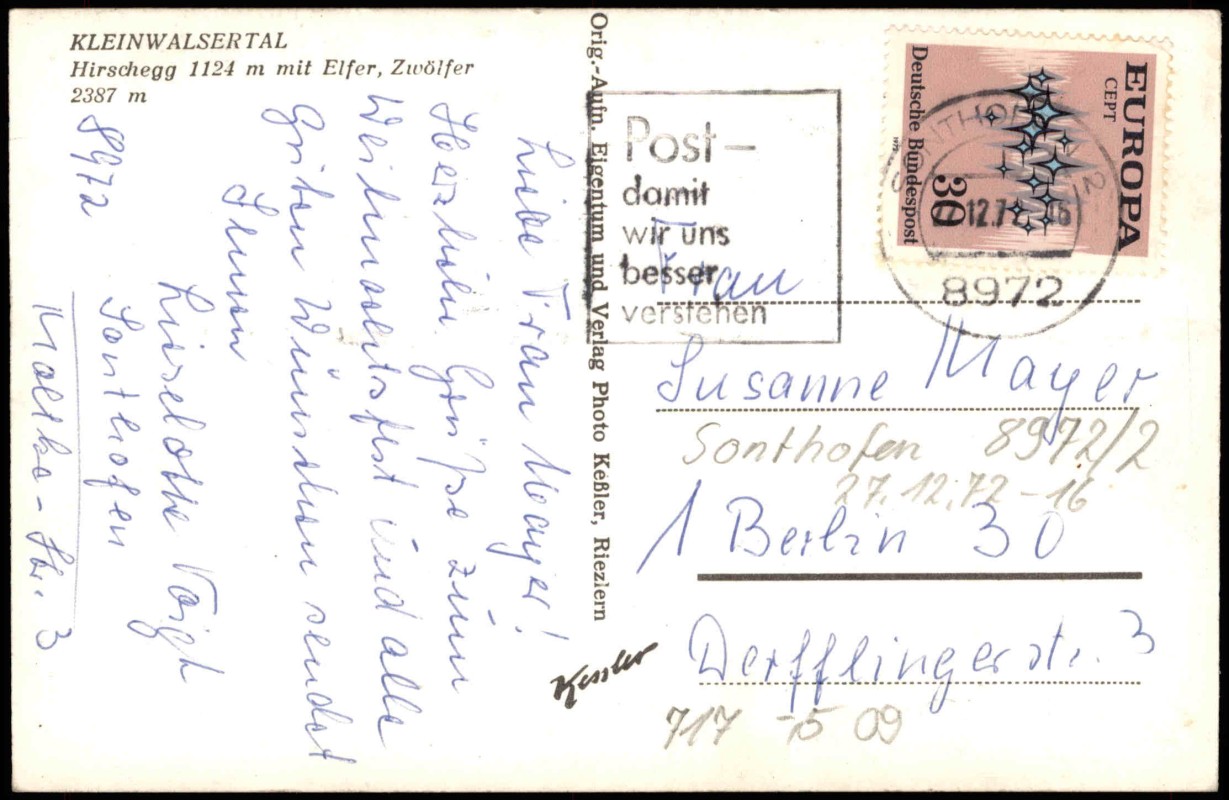 KLEINWALSERTAL
Hirschegg 1124 m mit Elfer, Zwölfer
2387 m
Liebe Frau Mayer!
Herzliche Grüße zum
Weihnachtsfest und alle
guten Wünschen sendet
Ihnen
Liselotte Voigt
8972 Sonthofen
Moltke-Str. 3
Orig.-Aufn. Eigentum und Verlag Photo Keßler, Riezlern
Kessler
Post-
damit
wir uns
besser
verstehen
EUROPA
CEPT
30
Deutsche Bundespost
8972
Frau
Susanne Mayer
Sonthofen 8972/2
27.12.72-16
1 Berlin 30
Derfflingerstr. 3
717 -5 09